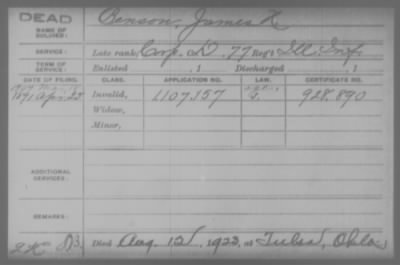 DEAD
NAME OF SOLDIER: Benson, James H.
SERVICE: Late rank, Corp. Co. D, 77 Reg't Ill. Inf.
TERM OF SERVICE: Enlisted , 1 Discharged , 1
DATE OF FILING. CLASS. APPLICATION NO. LAW. CERTIFICATE NO.
1891 Apr. 25 Invalid, 1107,157 928,890
Widow,
Minor,
ADDITIONAL SERVICES:
REMARKS:
Died Aug. 12, 1923, at Tulsa, Okla